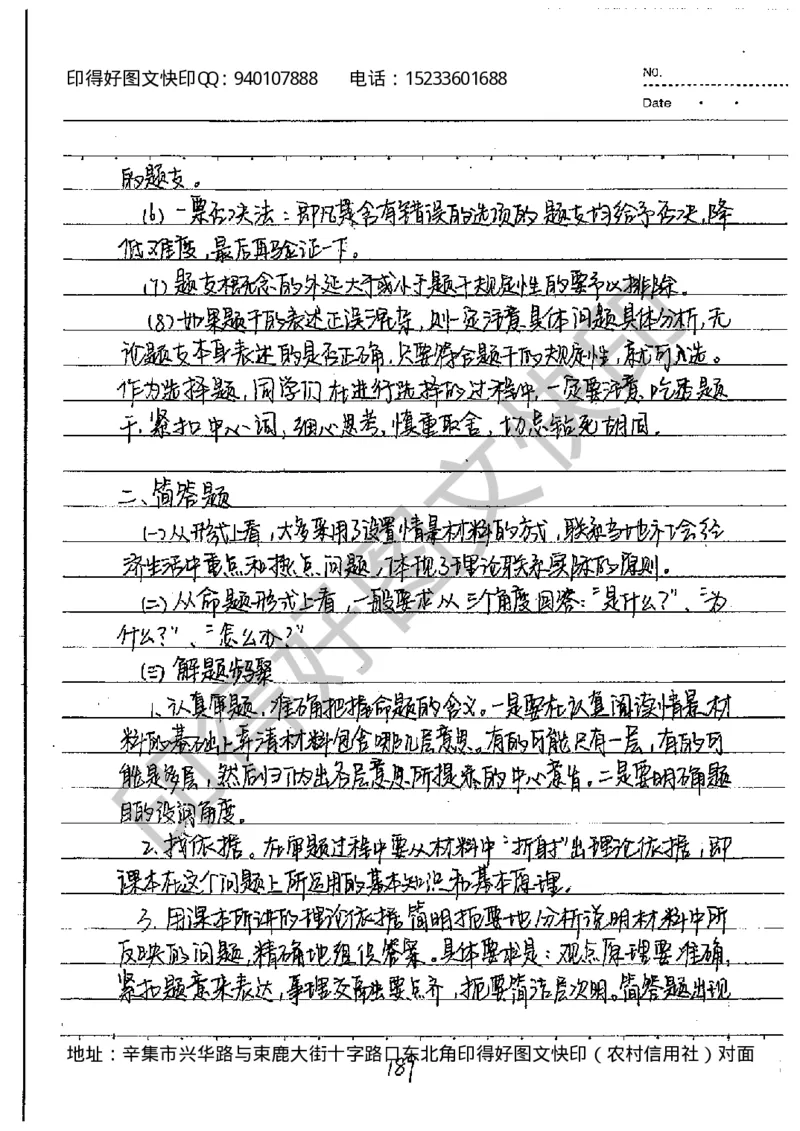 印得好图文快印QQ：940107888 电话：15233601688
No.
Date
的题支。
(6) 一票否决法：即凡是含有错误的选项的题支均给予否决,降
低难度,最后再验证一下。
(7) 题支概念的外延大于或小于题干规定性的要予以排除。
(8) 如果题干的表述正误混杂,则一定注意具体问题具体分析,无
论题支本身表述的是否正确,只要符合题干的规定性,就可入选。
作为选择题,同学们在进行选择的过程中,一定要注意吃透题
干,紧扣中心词,细心思考,慎重取舍,切忌钻死胡同。
二、简答题
(一) 从形式上看,大多采用了设置情景材料的方式,联系当地社会经
济生活中重点和热点问题,体现了理论联系实际的原则。
(二) 从命题形式上看,一般要求从三个角度回答:"是什么?"、"为
什么?"、"怎么办?"
(三) 解题步骤
1、认真审题,准确把握命题的含义。一是要在认真阅读情景材
料的基础上弄清材料包含哪几层意思。有的可能只有一层,有的可
能是多层,然后归纳出各层意思所提示的中心意旨。二是要明确题
目的设问角度。
2、找依据。在审题过程中要从材料中"折射"出理论依据,即
课本在这个问题上所运用的基本知识和基本原理。
3、用课本所讲的理论依据简明扼要地分析说明材料中所
反映的问题,精确地组织答案。具体要求是:观点原理要准确,
紧扣题意来表达,事理交融出要点齐,扼要简洁层次明。简答题出现
地址：辛集市兴华路与束鹿大街十字路口东北角印得好图文快印（农村信用社）对面
189
印得好图文快印